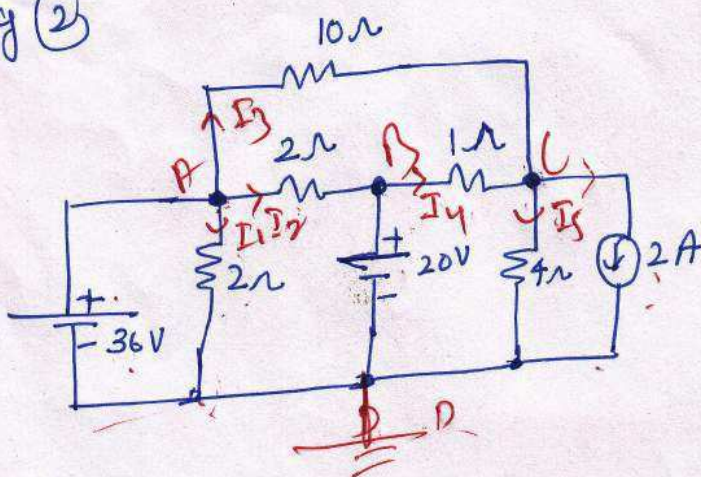 y (2)
10Ω
I3
A 2Ω B 1Ω C
I1 I2 I4 I5
2Ω + 20V - 4Ω 2A
+
- 36V
D D